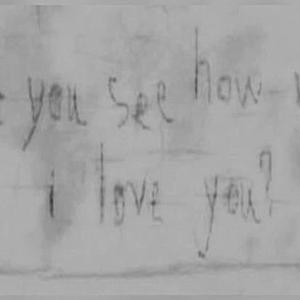 you see how
i love you?